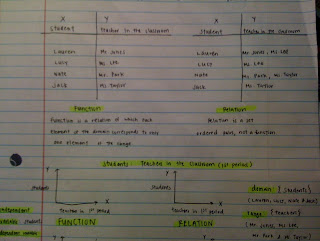 X Y X Y
Student Teacher in the classroom Student Teacher in the classroom
Lauren Mr Jones Lauren Mr Jones, Ms Lee
Lucy Ms Lee Lucy Ms. Lee
Nate Ms. Park Nate Ms Park, Mr Taylor
Jack Mr Taylor Jack Mr Taylor
Function Relation
Function is a relation of which each Relation is a set
element of the domain corresponds to
one element in the range. ordered pairs, not a function
Students : Teacher in the Classroom (1st period)
Y Y domain: {Students}
Students Students (Lauren, Lucy, Nate & Jack)
X X range: {Teachers}
Teacher in 1st period Teacher in 1st period (Mr Jones, Ms Lee,
FUNCTION RELATION Ms Park & Mr Taylor)
independent
students
dependent
Y Y